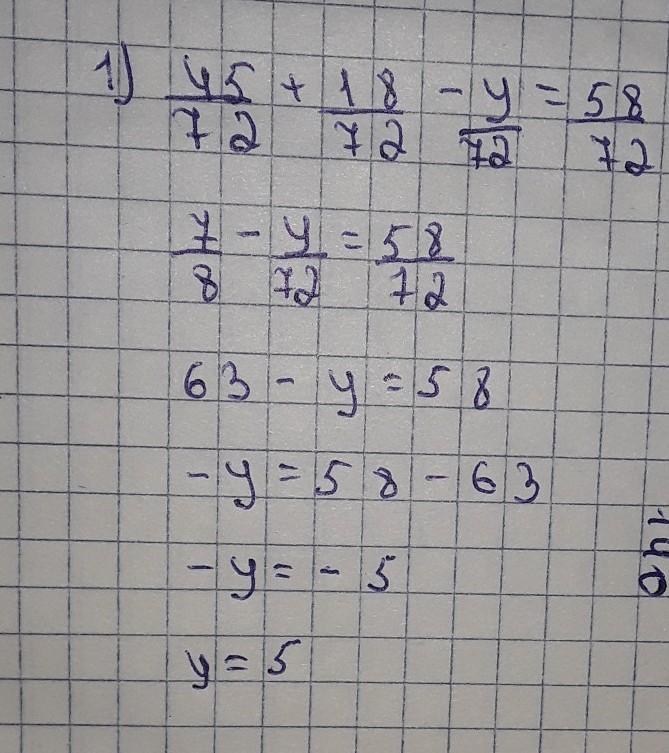 1) 45/72 + 18/72 - y/72 = 58/72
7/8 - y/72 = 58/72
63 - y = 58
-y = 58 - 63
-y = - 5
y = 5